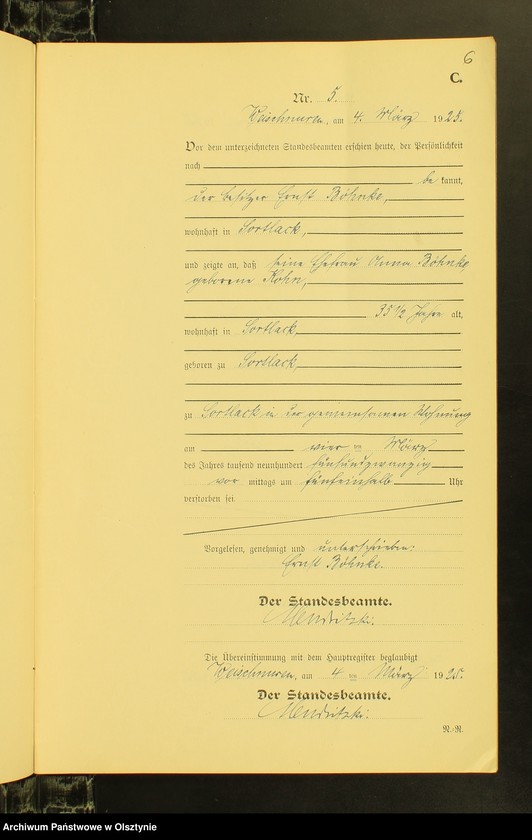 6
C.
Nr. 5.
am 4. März 1925.
Vor dem unterzeichneten Standesbeamten erschien heute, der Persönlichkeit
nach
be kannt,
der Besitzer Ernst Böhnke,
wohnhaft in Sortlack,
und zeigte an, daß seine Ehefrau Anna Böhnke
geborene Kohn,
35 1/2 Jahre alt,
wohnhaft in Sortlack,
geboren zu Sortlack,
zu Sortlack in der gemeinsamen Wohnung
am vier ten März
des Jahres tausend neunhundert fünfundzwanzig
vor mittags um fünfeinhalb Uhr
verstorben sei.
Vorgelesen, genehmigt und unterschrieben:
Ernst Böhnke.
Der Standesbeamte.
Die Übereinstimmung mit dem Hauptregister beglaubigt
am 4 ten März 1925.
Der Standesbeamte.
R.-R.
Archiwum Państwowe w Olsztynie